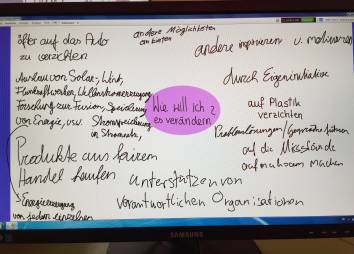 öfter auf das Auto
zu verzichten
andere Möglichkeiten
anbieten
andere inspirieren u. motivieren
Ausbau von Solar-, Wind,
Forschung zur Fusion, Speicherung
von Energie, usw. Stromspeicherung
Wie will ich
es verändern?
durch Eigeninitiative
auf Plastik
verzichten
Problemlösungen / Gespräche führen
auf die Missstände
aufmerksam machen
Produkte aus fairem
Handel kaufen
unterstützen von
verantwortlichen Organisationen
Energieerzeugung
von jedem einzelnen
SAMSUNG